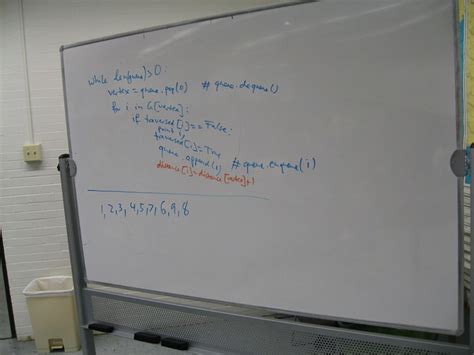 while len(queue)>0:
vertex = queue.pop(0) # queue.dequeue()
for i in G[vertex]:
if traversed[i]==False:
print i
traversed[i]=True
queue.append(i) # queue.enqueue(i)
distance[i]=distance[vertex]+1
1,2,3,4,5,7,6,9,8